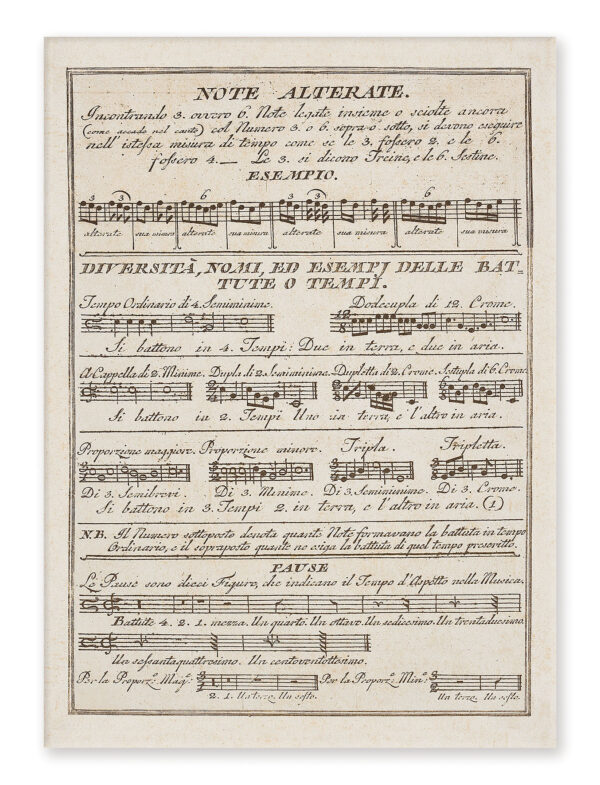 NOTE ALTERATE.
Incontrando 3. ovvero 6. Note legate insieme o sciolte ancora
(come accade nel canto) col Numero 3. o 6. sopra o sotto, si devono eseguire
nell' istessa misura di tempo come se le 3. fossero 2. e le 6.
fossero 4. — Le 3. si dicono Treine, e le 6. Sestine.
ESEMPIO.
3 3 6 3 3 6
alterate sua misura alterate sua misura alterate sua misura alterate sua misura
DIVERSITÀ, NOMI, ED ESEMPJ DELLE BAT-
TUTE O TEMPI.
Tempo Ordinario di 4. Semiminime. Dodecupla di 12. Crome.
12
8
Si battono in 4. Tempi: Due in terra, e due in aria.
A Cappella di 2. Minime. Dupla di 2. Semiminime. Dupletta di 2. Crome. Sestupla di 6. Crome
Si battono in 2. Tempi Uno in terra, e l'altro in aria.
Proporzione maggiore. Proporzione minore. Tripla. Tripletta.
Di 3. Semibrevi. Di 3. Minime. Di 3. Semiminime. Di 3. Crome.
Si battono in 3. Tempi 2. in terra, e l'altro in aria. (1)
N.B. Il Numero sottoposto denota quante Note formavano la battuta in tempo
Ordinario, e il sopraposto quante ne esiga la battuta di quel tempo prescritto.
PAUSE
Le Pause sono dieci Figure, che indicano il Tempo d'Aspetto nella Musica.
Battute 4. 2. 1. mezza. Un quarto. Un ottavo. Un sedicesimo. Un trentaduesimo.
Un sessantaquattresimo. Un centoventottesimo.
Per la Proporz.e Mag.e Per la Proporz.e Min.e
2. 1. Un terzo. Un sesto. Un terzo. Un sesto.